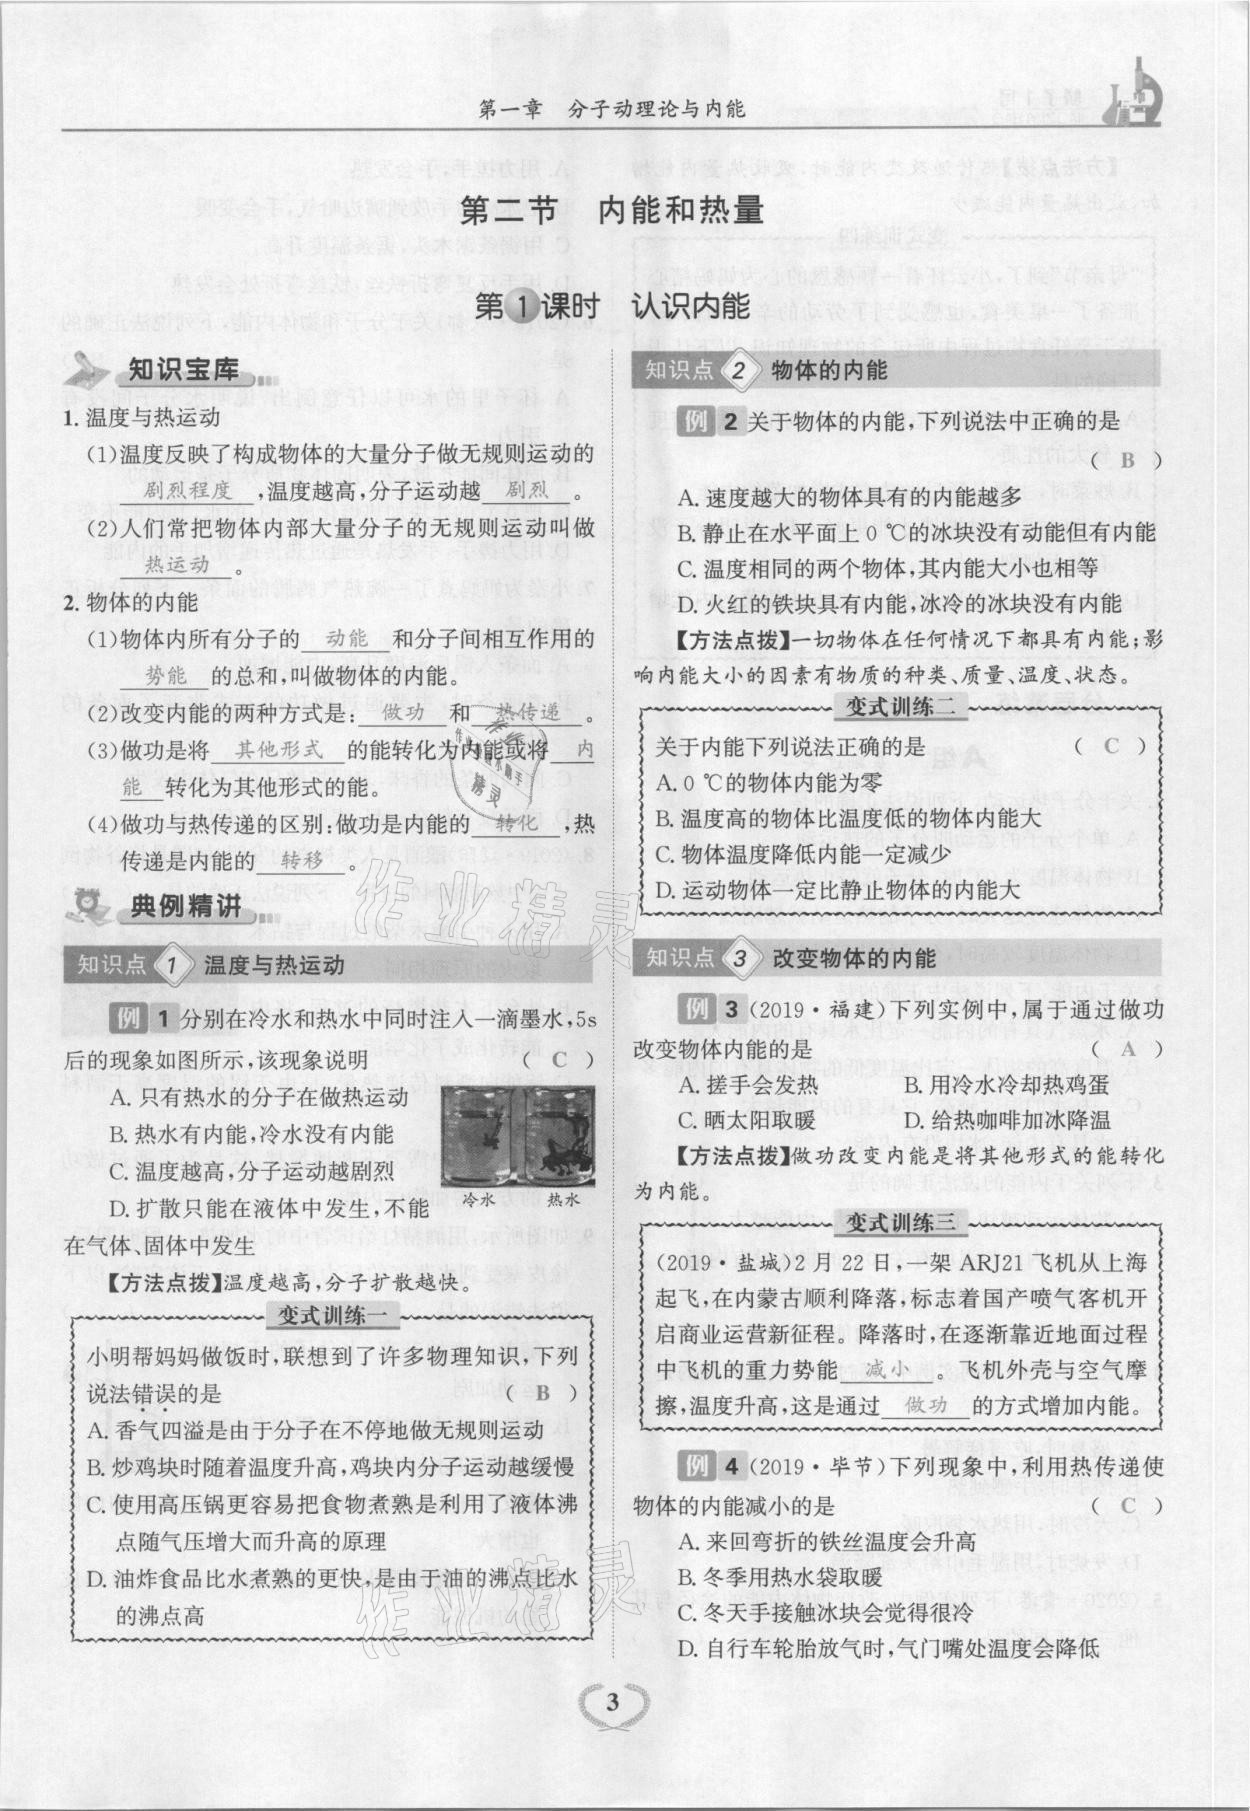 第一章 分子动理论与内能
第二节 内能和热量
第1课时 认识内能
知识宝库
1. 温度与热运动
(1)温度反映了构成物体的大量分子做无规则运动的
剧烈程度,温度越高,分子运动越 剧烈 。
(2)人们常把物体内部大量分子的无规则运动叫做
热运动 。
2. 物体的内能
(1)物体内所有分子的 动能 和分子间相互作用的
势能 的总和,叫做物体的内能。
(2)改变内能的两种方式是: 做功 和 热传递 。
(3)做功是将 其他形式 的能转化为内能或将 内
能 转化为其他形式的能。
(4)做功与热传递的区别:做功是内能的 转化 ,热
传递是内能的 转移 。
典例精讲
知识点 1 温度与热运动
例 1 分别在冷水和热水中同时注入一滴墨水,5s
后的现象如图所示,该现象说明 ( C )
A. 只有热水的分子在做热运动
B. 热水有内能,冷水没有内能
C. 温度越高,分子运动越剧烈
D. 扩散只能在液体中发生,不能
在气体、固体中发生
冷水 热水
【方法点拨】温度越高,分子扩散越快。
变式训练一
小明帮妈妈做饭时,联想到了许多物理知识,下列
说法错误的是 ( B )
A. 香气四溢是由于分子在不停地做无规则运动
B. 炒鸡块时随着温度升高,鸡块内分子运动越缓慢
C. 使用高压锅更容易把食物煮熟是利用了液体沸
点随气压增大而升高的原理
D. 油炸食品比水煮熟的更快,是由于油的沸点比水
的沸点高
知识点 2 物体的内能
例 2 关于物体的内能,下列说法中正确的是
( B )
A. 速度越大的物体具有的内能越多
B. 静止在水平面上 0 ℃的冰块没有动能但有内能
C. 温度相同的两个物体,其内能大小也相等
D. 火红的铁块具有内能,冰冷的冰块没有内能
【方法点拨】一切物体在任何情况下都具有内能;影
响内能大小的因素有物质的种类、质量、温度、状态。
变式训练二
关于内能下列说法正确的是 ( C )
A. 0 ℃的物体内能为零
B. 温度高的物体比温度低的物体内能大
C. 物体温度降低内能一定减少
D. 运动物体一定比静止物体的内能大
知识点 3 改变物体的内能
例 3 (2019·福建)下列实例中,属于通过做功
改变物体内能的是 ( A )
A. 搓手会发热 B. 用冷水冷却热鸡蛋
C. 晒太阳取暖 D. 给热咖啡加冰降温
【方法点拨】做功改变内能是将其他形式的能转化
为内能。
变式训练三
(2019·盐城)2 月 22 日,一架 ARJ21 飞机从上海
起飞,在内蒙古顺利降落,标志着国产喷气客机开
启商业运营新征程。降落时,在逐渐靠近地面过程
中飞机的重力势能 减小 。飞机外壳与空气摩
擦,温度升高,这是通过 做功 的方式增加内能。
例 4 (2019·毕节)下列现象中,利用热传递使
物体的内能减小的是 ( C )
A. 来回弯折的铁丝温度会升高
B. 冬季用热水袋取暖
C. 冬天手接触冰块会觉得很冷
D. 自行车轮胎放气时,气门嘴处温度会降低
作业精灵
作业精灵
3